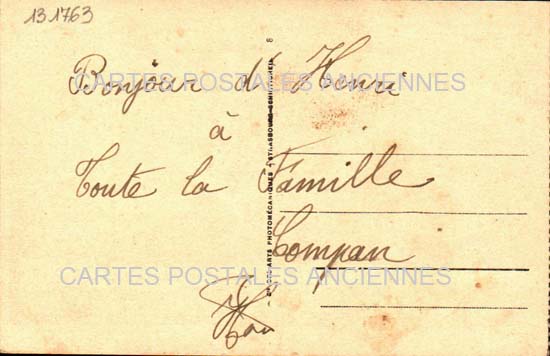 131763
8
Bonjour d'Henri
CARTES POSTALES ANCIENNES
à
Toute la Famille
Compan
CARTES POSTALES ANCIENNES
ARTS PHOTOMÉCANIQUES - STRASBOURG-SCHILTIGHEIM